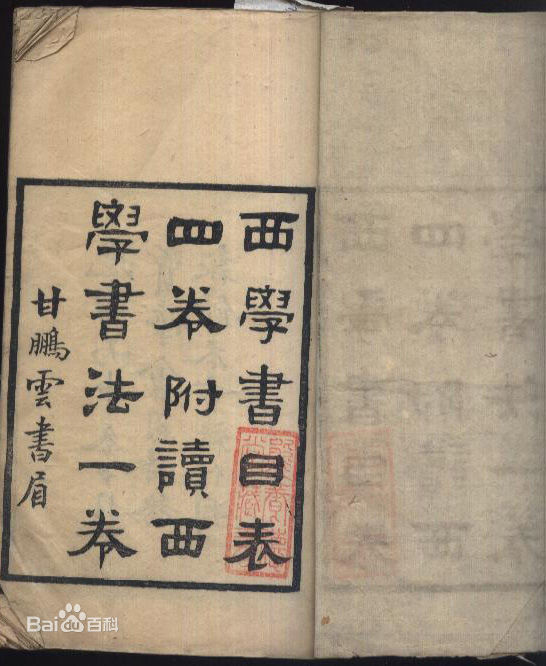 西學書目表
四卷附讀西
學書法一卷
甘鵬雲書眉
Bai du 百科